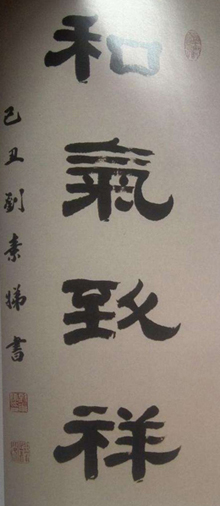 和氣致祥
己丑劉素娣書